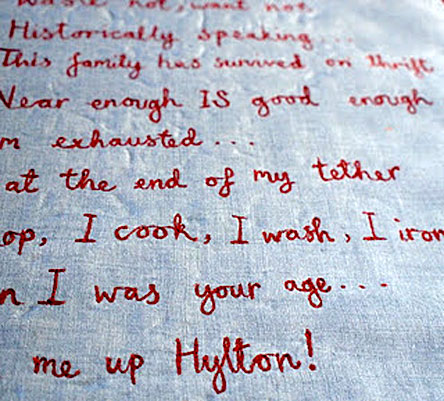 Waste not, want not.
Historically speaking...
This family has survived on thrift
Near enough IS good enough
m exhausted...
at the end of my tether
op, I cook, I wash, I iron
n I was your age...
me up Hylton!